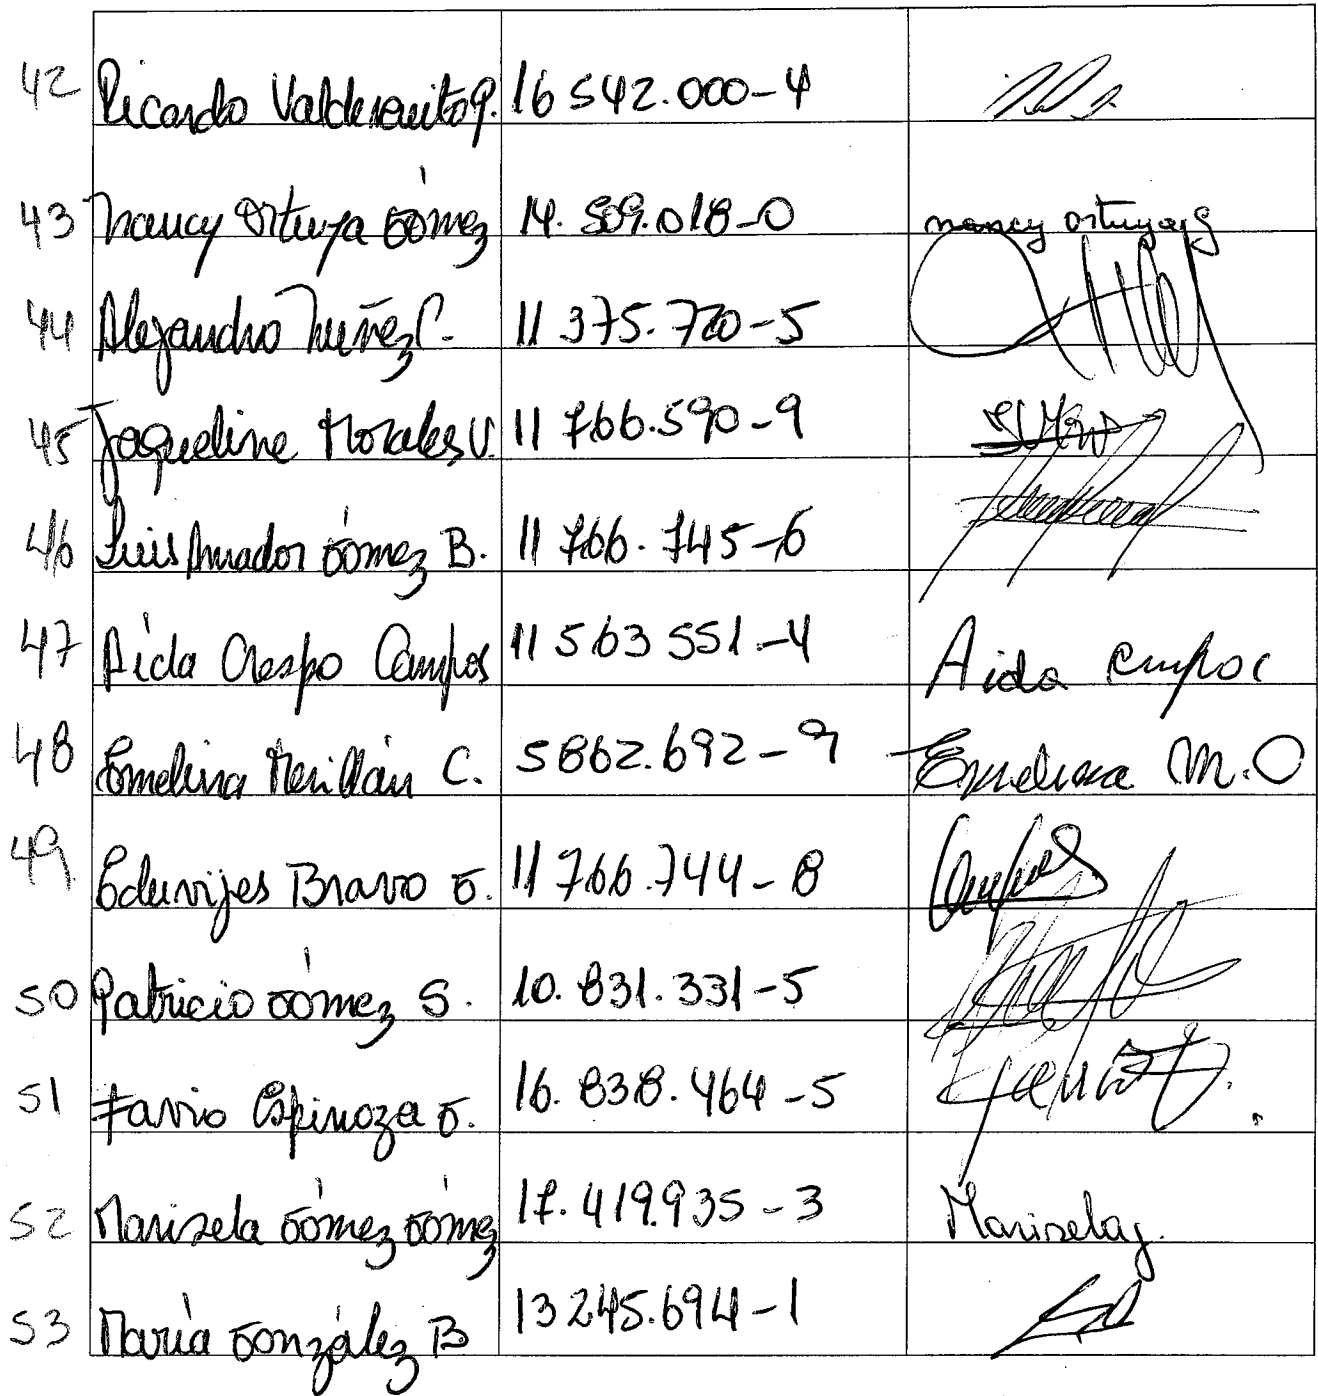 42 Ricardo Valdebenito P. 16 542.000-4
43 Nancy Ortuya Gómez 14. 509.018-0 nancy ortuya G
44 Alejandro Nuñez C. 11 375.720-5
45 Jaqueline Morales V. 11 766.590-9
46 Luis Amador Gómez B. 11 766.745-6
47 Aida Crespo Campos 11 563 551-4 Aida
48 Emelina Merillán C. 5862.692-9 Emelina M.C
49 Eduvijes Bravo G. 11 766.744-8
50 Patricio Gómez S. 10.831.331-5
51 Favio Espinoza G. 16.838.464-5
52 Marizela Gómez Gómez 17.419.935-3 Marizela g.
53 María González B 13 245.694-1